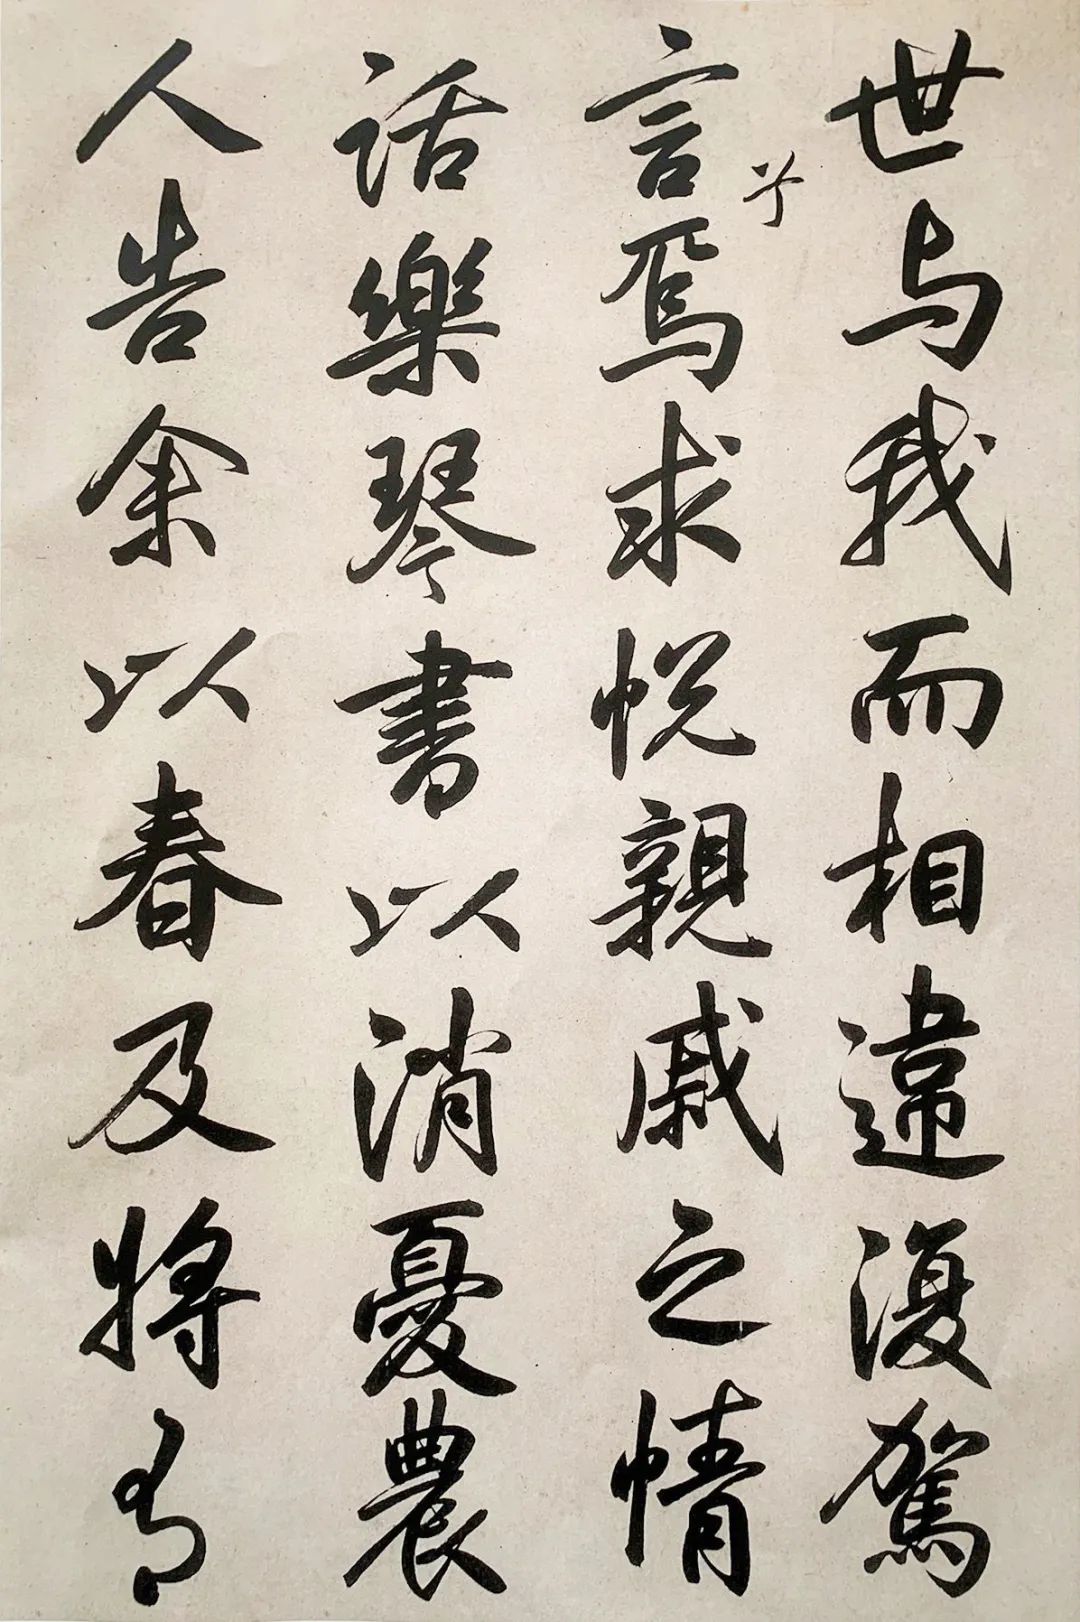 世与我而相違復駕
言兮焉求悅親戚之情
話樂琴書以消憂農
人告余以春及將有